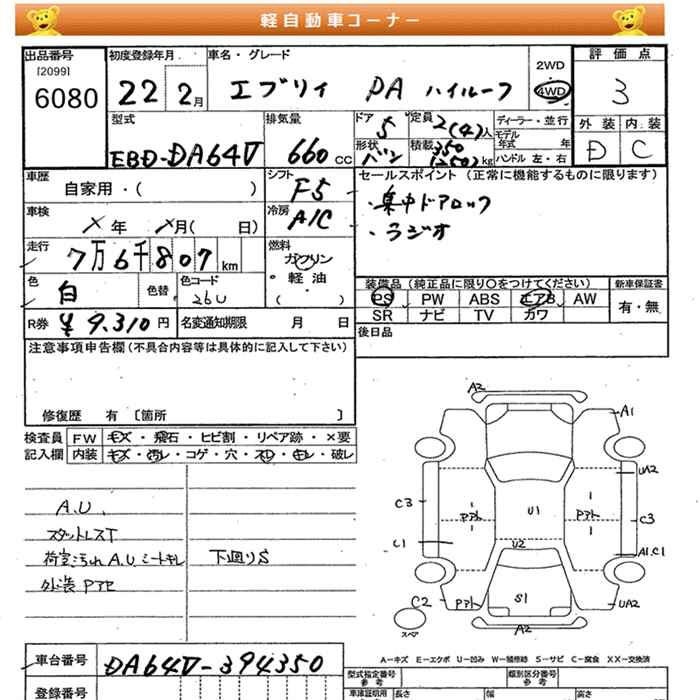 軽自動車コーナー
出品番号
[2099]
6080
初度登録年月
22 2月
車名・グレード
エブリイ PA ハイルーフ
2WD
4WD
評価点
3
外装 内装
D C
型式
EBD-DA64V
排気量
660 cc
ドア
5
定員
2(4)人
形状
バン
積載
350
(250)kg
ディーラー・並行
モデル
年式 年
ハンドル 左・右
車歴
自家用・( )
シフト
F5
車検
X年 X月( 日)
冷房
A/C
走行
7万6千807km
燃料
ガソリン
軽油
( )
色
白
色替
色コード
26U
R券 ¥9,310円
名変通知期限 月 日
セールスポイント (正常に機能するものに限ります)
・集中ドアロック
・ラジオ
装備品 (純正品に限り○をつけてください)
新車保証書
PS PW ABS エアB AW
SR ナビ TV カワ
有・無
後日品
注意事項申告欄(不具合内容等は具体的に記入して下さい)
修復歴 有 〔箇所 〕
検査員
記入欄
FW キズ・飛石・ヒビ割・リペア跡・×要
内装 キズ・汚レ・コゲ・穴・スレ・キレ・破レ
A.U.
スタットレスT
荷室汚れ A.U シートキレ
外装 Pアセ
下廻りS
A2
A1
UA2
C3
Pアト
U1
Pアト
C3
C1
U2
A1.C1
C2
Pアト
S1
UA2
スペア
A2
A―キズ E―エクボ U―凹み W―補修跡 S―サビ C―腐食 XX―交換済
車台番号 DA64V-394350
登録番号
型式指定番号
参考
類別区分番号
参考
車庫証明用
長さ
幅
高さ